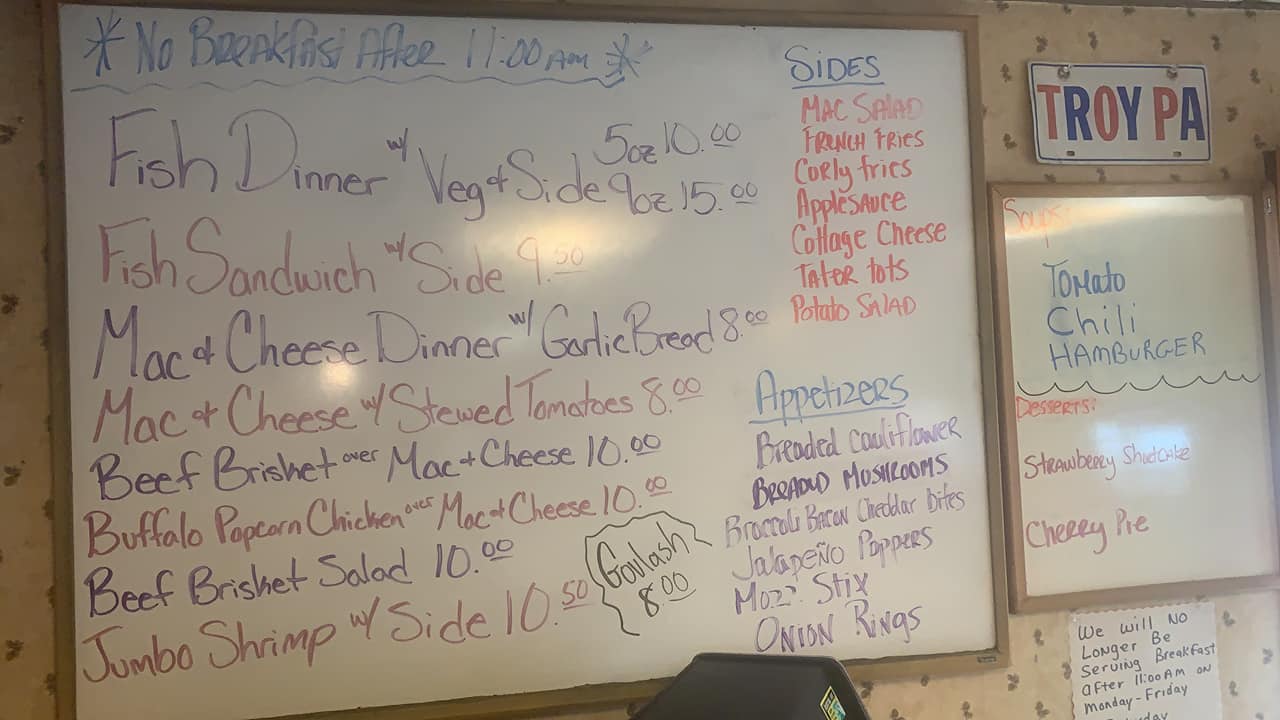 * No Breakfast After 11:00 AM *
Fish Dinner w/ Veg + Side 5oz 10.00
9oz 15.00
Fish Sandwich w/ Side 9.50
Mac + Cheese Dinner w/ Garlic Bread 8.00
Mac + Cheese w/ Stewed Tomatoes 8.00
Beef Brisket over Mac + Cheese 10.00
Buffalo Popcorn Chicken over Mac + Cheese 10.00
Beef Brisket Salad 10.00
Jumbo Shrimp w/ Side 10.50
Goulash
8.00
SIDES
MAC SALAD
FRENCH FRIES
Curly fries
Applesauce
Cottage Cheese
TATER TOTS
Potato SALAD
Appetizers
Breaded Cauliflower
BREADED MUSHROOMS
Broccoli Bacon Cheddar Bites
Jalapeño Poppers
Mozz. Stix
ONION Rings
TROY PA
Soups:
Tomato
Chili
HAMBURGER
Desserts:
Strawberry Shortcake
Cherry Pie
We will NO
Longer Be
Serving Breakfast
after 11:00 AM ON
Monday-Friday